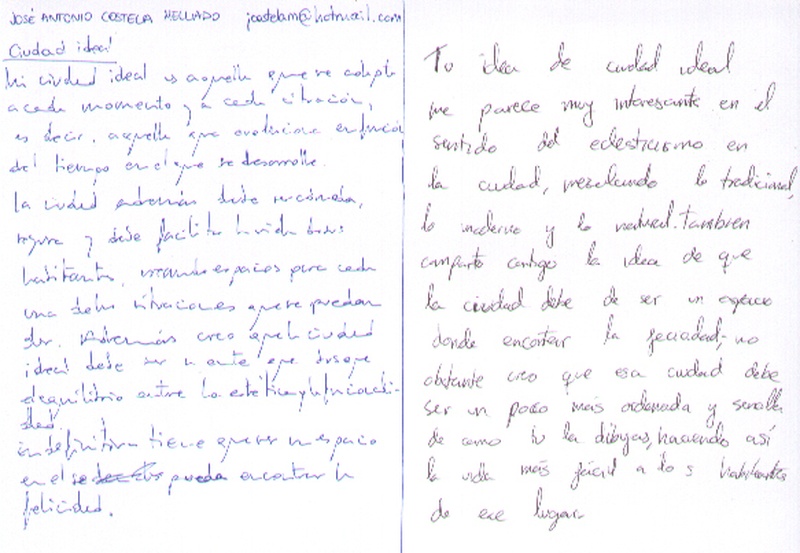 JOSÉ ANTONIO COSTELA MELLADO jcostelam@hotmail.com
Ciudad ideal
Mi ciudad ideal es aquella que se adapta
a cada momento y a cada situación,
es decir, aquella que evoluciona en función
del tiempo en el que se desarrolle.
La ciudad además debe ser cómoda,
segura y debe facilitar la vida de sus
habitantes, creando espacios para cada
una de las situaciones que se puedan
dar. Además creo que la ciudad
ideal debe ser un ente que busque
el equilibrio entre la estética y la funcionali-
dad.
En definitiva tiene que ser un espacio
en el se pueda encontrar la
felicidad.
Tu idea de ciudad ideal
me parece muy interesante en el
sentido del eclecticismo en
la ciudad, mezclando lo tradicional,
lo moderno y lo natural. Tambien
comparto contigo la idea de que
la ciudad debe de ser un espacio
donde encontrar la feciadad; no
obstante creo que esa ciudad debe
ser un poco más ordenada y sencilla
de como tu la dibujas, haciendo así
la vida más fácil a los habitantes
de ese lugar.